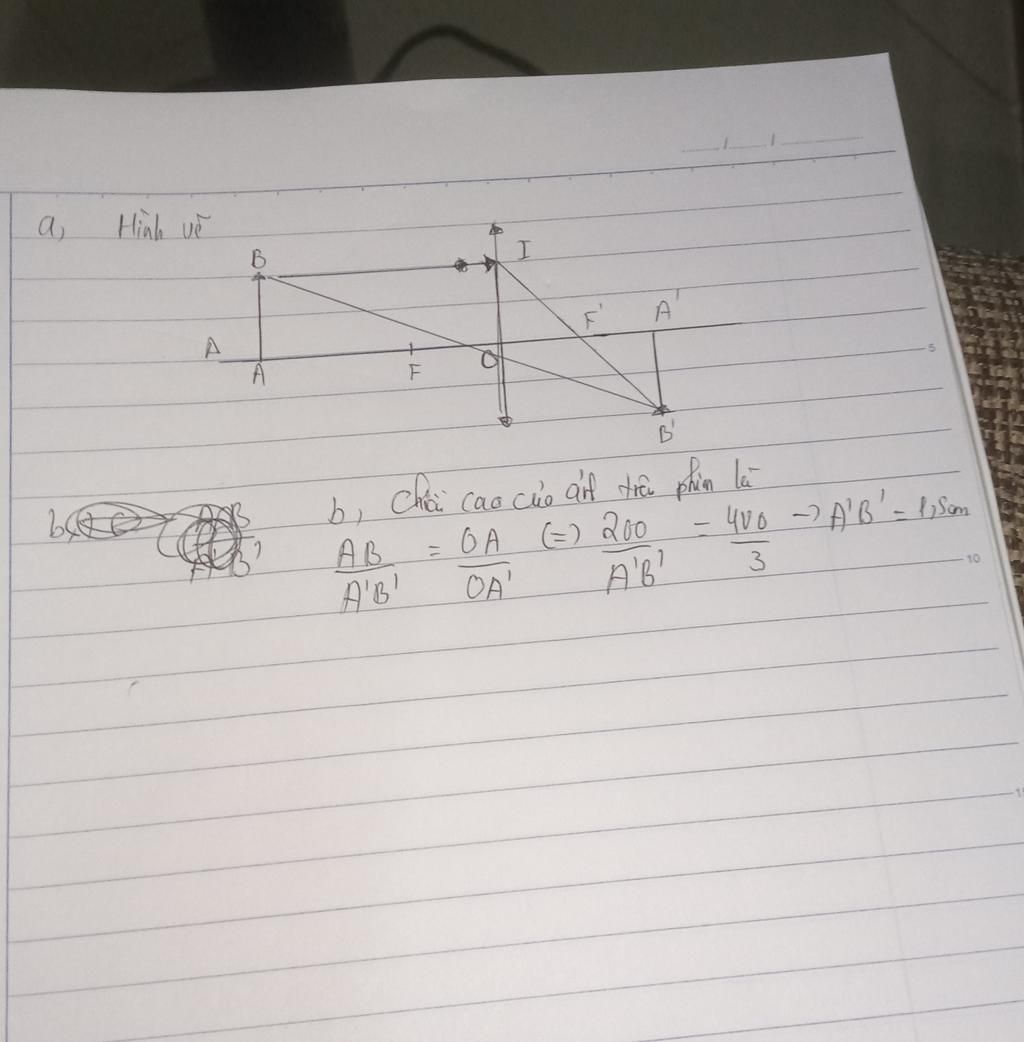 a, Hình vẽ
B
I
F'
A'
A
A
F
O
B'
5
b, Chiều cao của ảnh trên phim là
AB/A'B' = OA/OA' (=) 200/A'B' = 400/3 → A'B' = 1,5cm
10